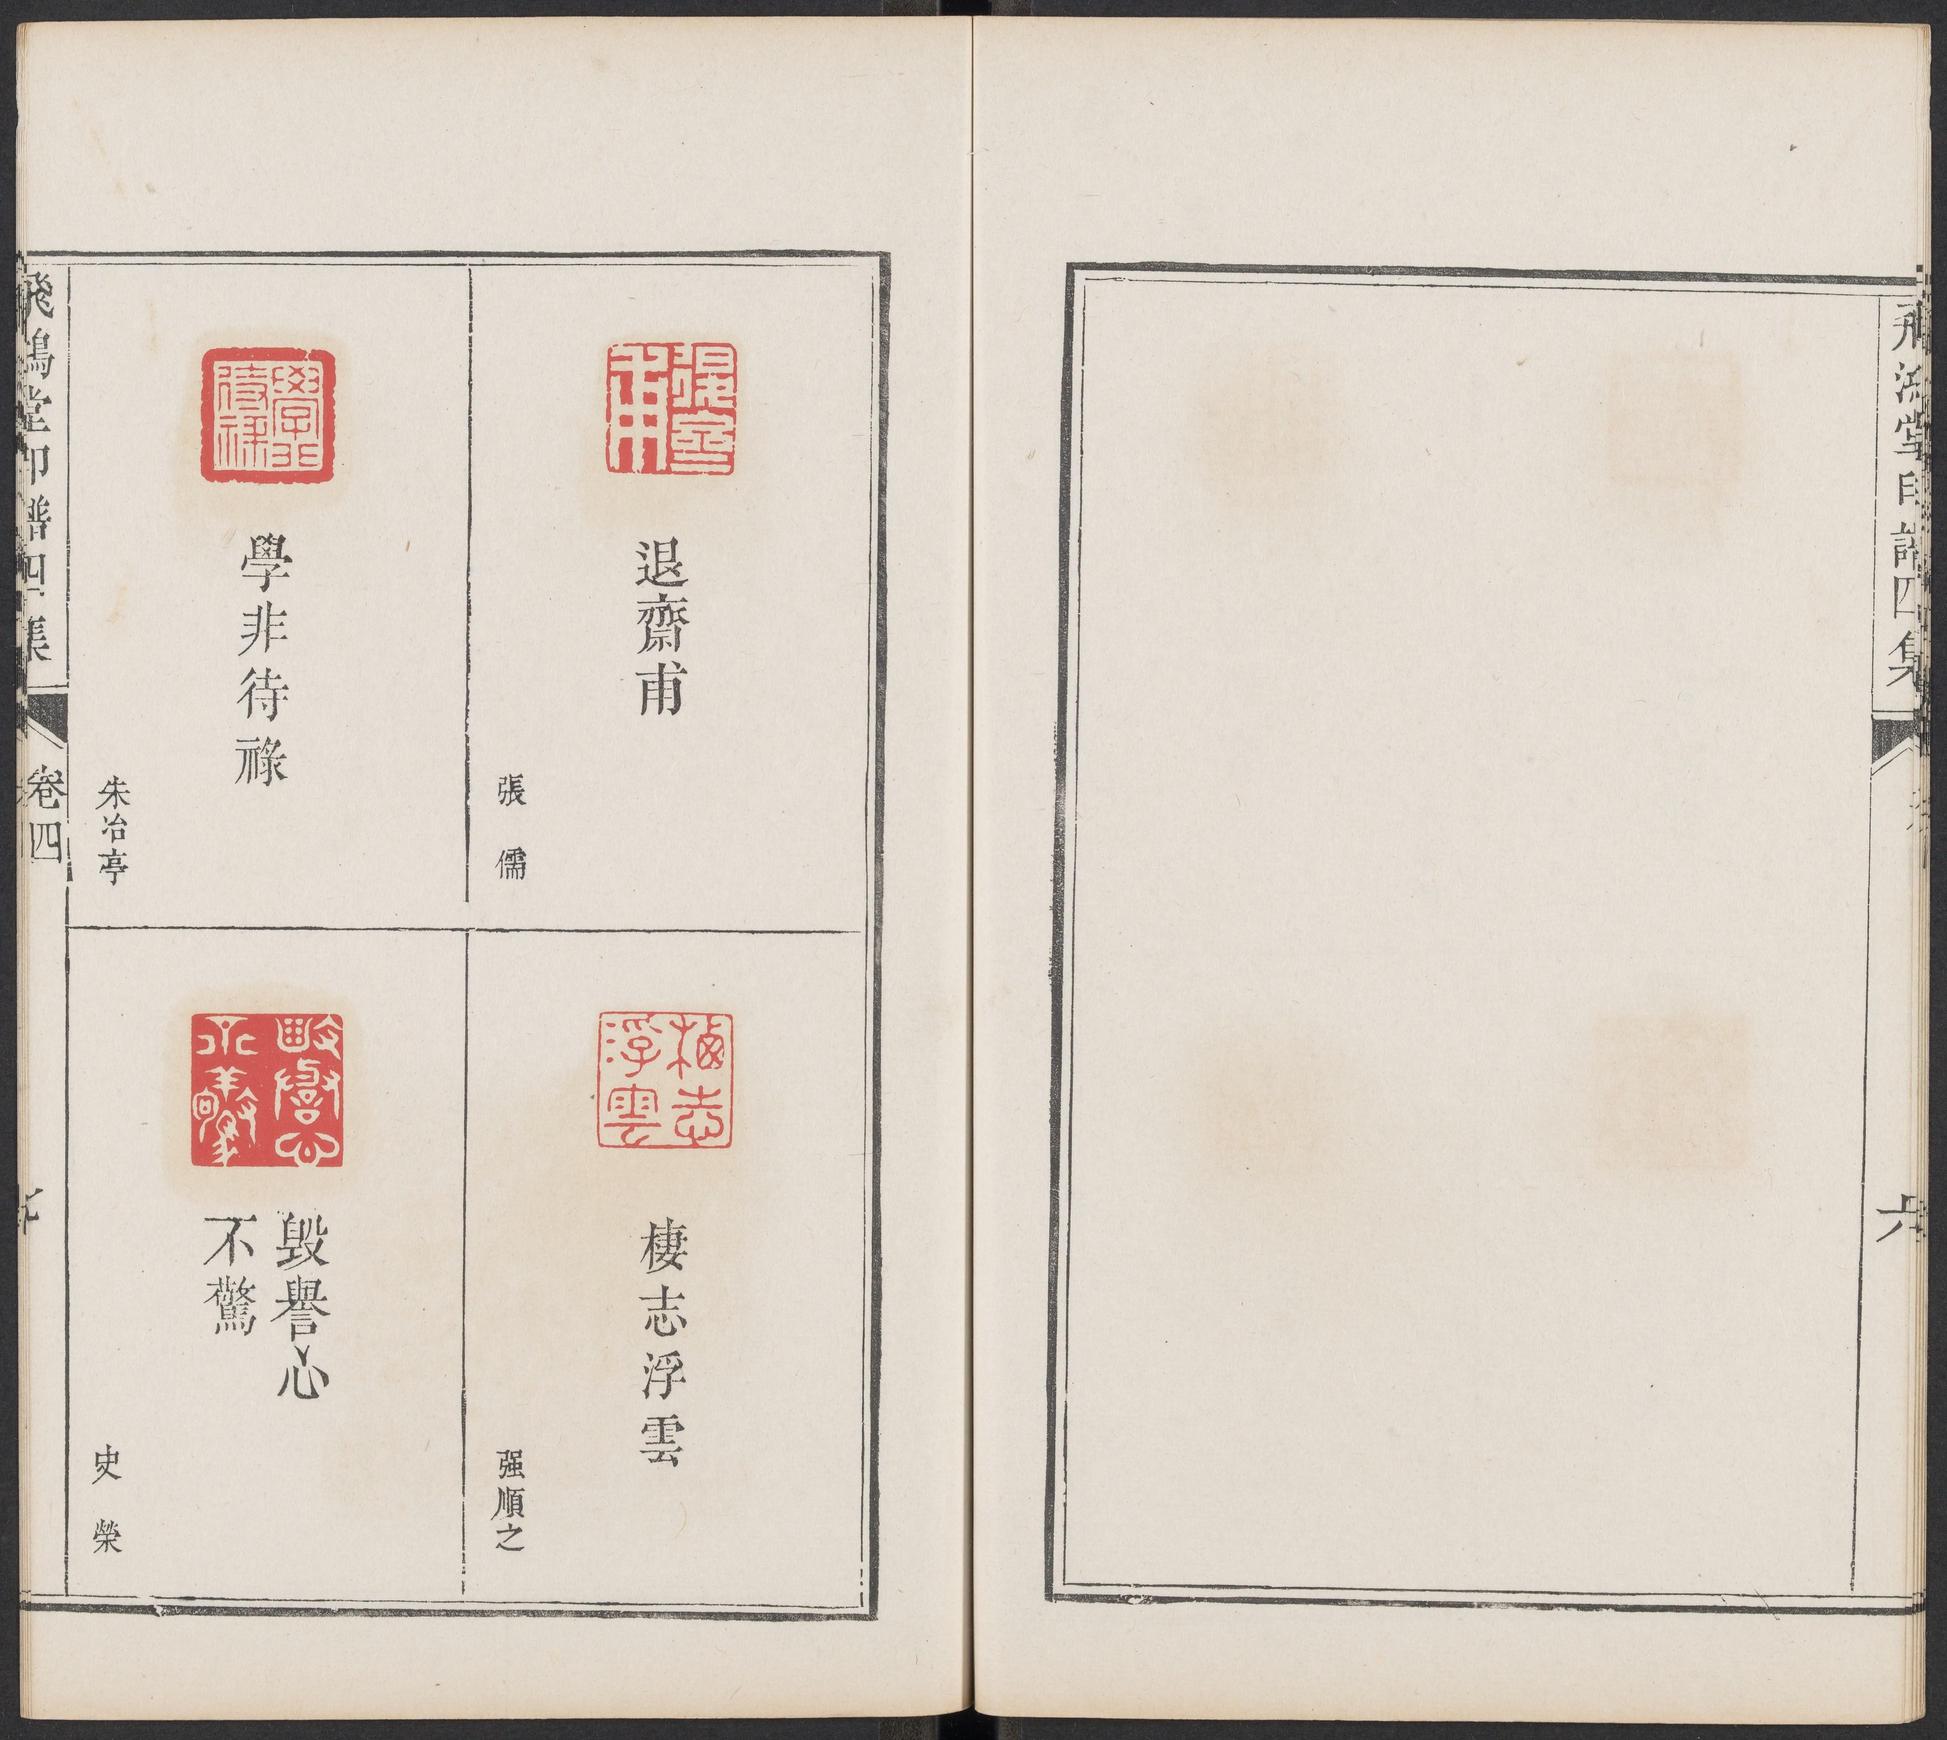 飛鴻堂印譜四集
六
退齋甫
張儒
棲志浮雲
强順之
學非待祿
朱冶亭
毀譽心
不驚
史榮
飛鴻堂印譜四集
卷四